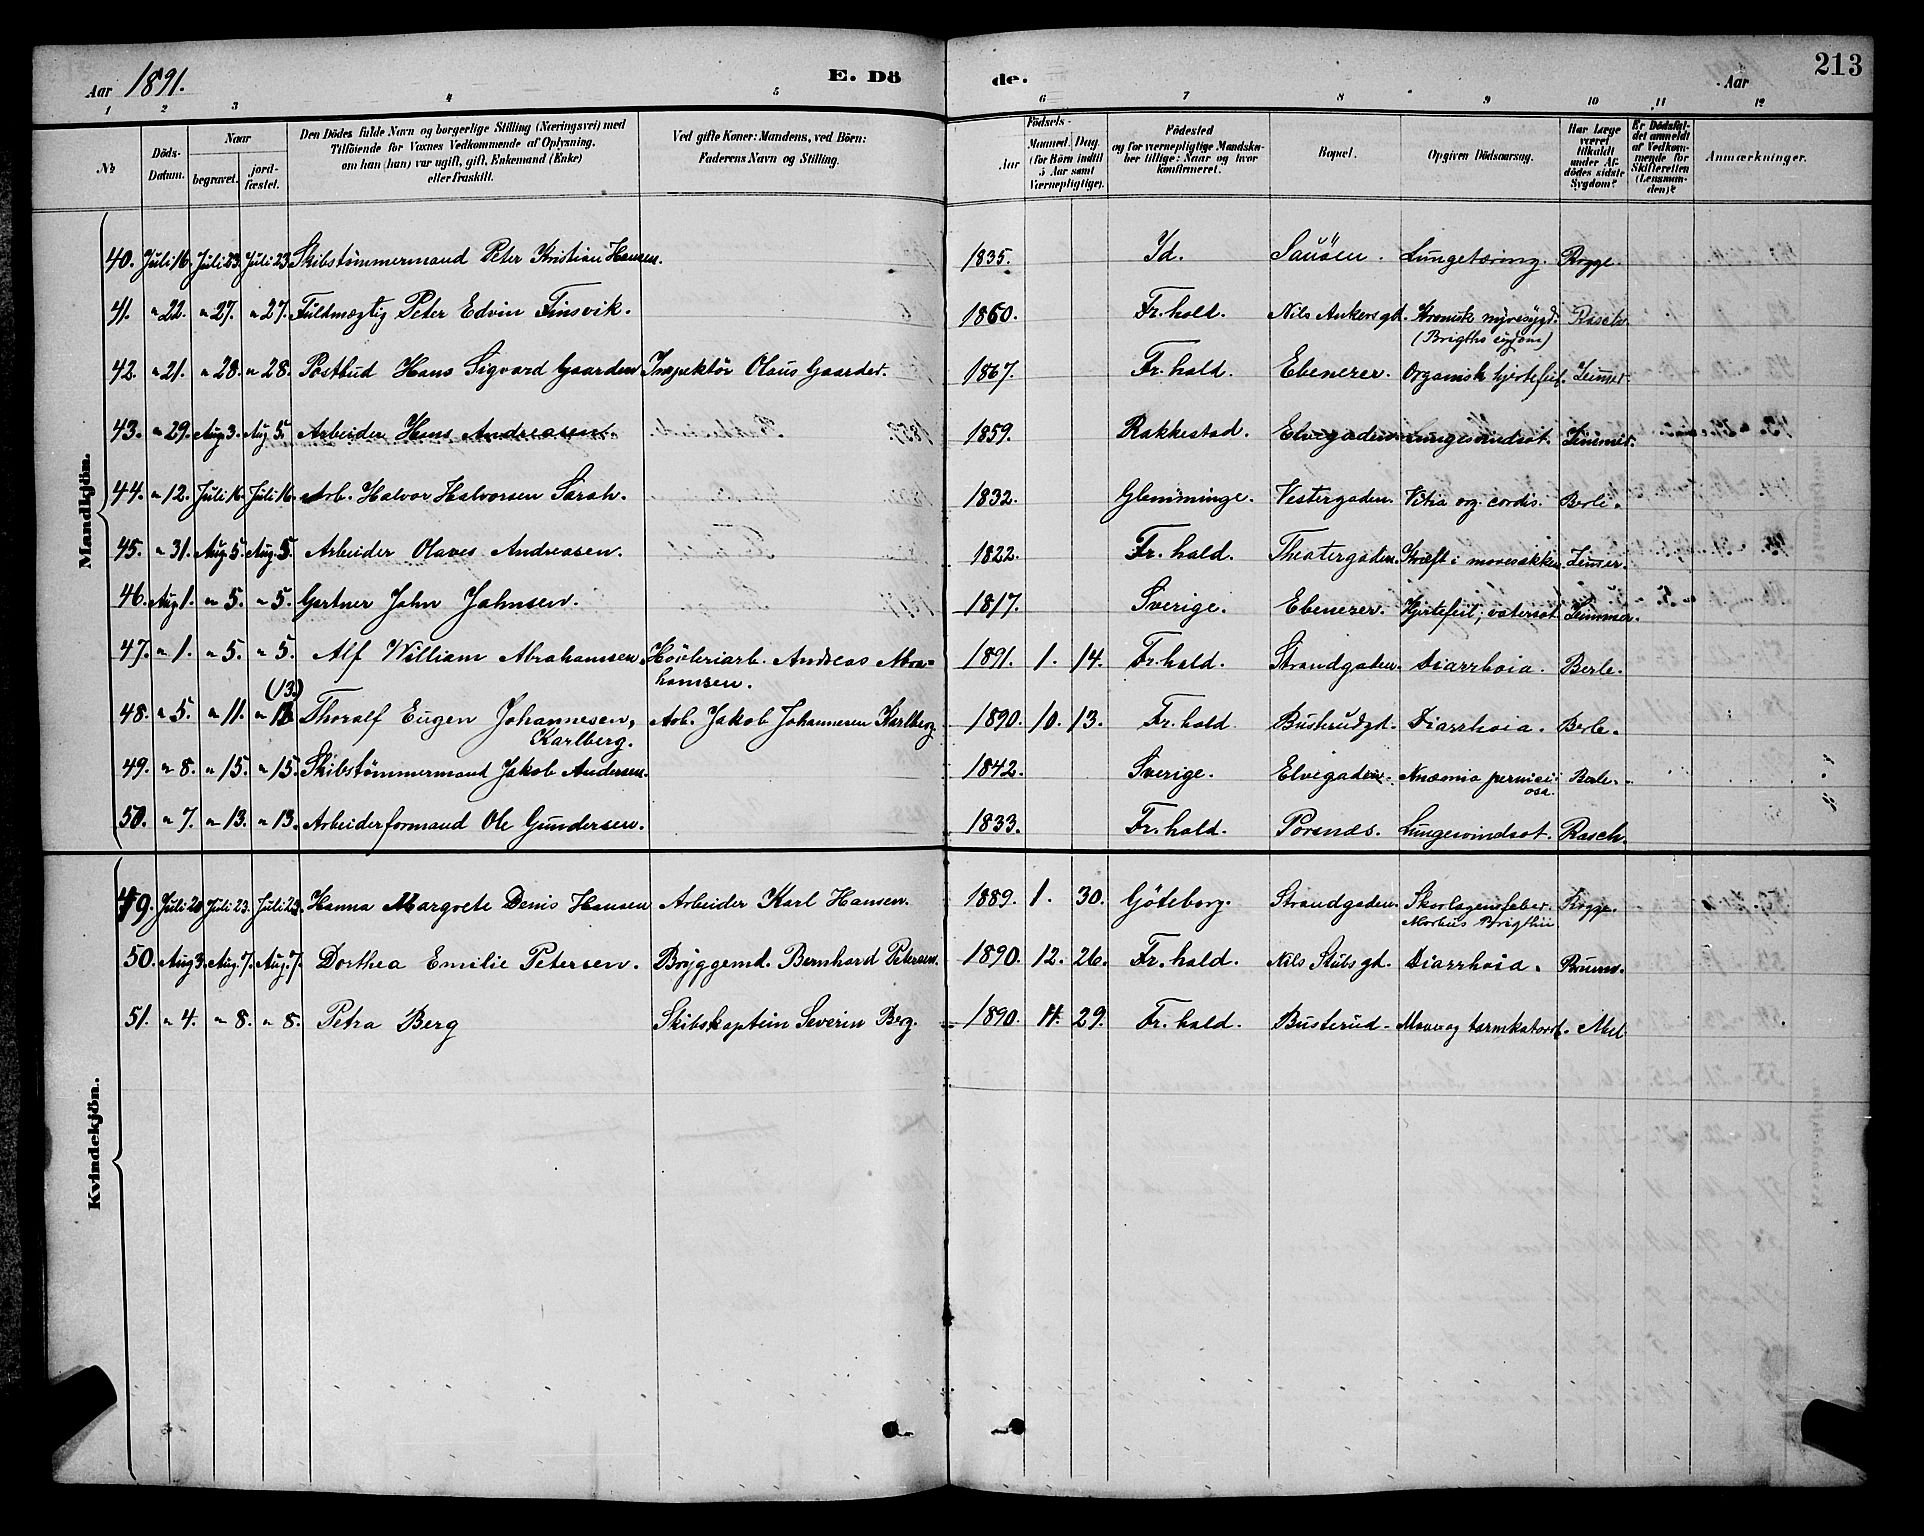 Aar 1891. E. Dö
de. Aar 213
1 2 3 4 5 6 7 8 9 10 11 12
No
Döds-Datum.
Naar
begravet.
jord-fæstet.
Den Dödes fulde Navn og borgerlige Stilling (Næringsvei) med
Tilföiende for Voxnes Vedkommende af Oplysning,
om han (hun) var ugift, gift, Enkemand (Enke)
eller fraskilt.
Ved gifte Koner: Mandens, ved Börn:
Faderens Navn og Stilling.
Födsels-
Aar
Maaned. Dag
(for Börn indtil
5 Aar samt
Værnepligtige).
Födested
og for værnepligtige Mandska-
ber tillige: Naar og hvor
konfirmeret.
Bopæl.
Opgiven Dödsaarsag.
Har Læge
været
tilkaldt
under Af-
dödes sidste
Sygdom?
Er Dödsfal-
det anmeldt
af Vedkom-
mende for
Skifteretten
(Lensman-
den)?
Anmærkninger.
Mandkjön.
40. Juli 16. Juli 23. Juli 23 Skibstømmermand Peter Kristian Hansen. 1835. Id. Sauöen. Lungetæring. Rygge.
41. " 22. " 27. " 27. Fuldmægtig Peter Edvin Finsvik. 1860. Fr.hald. Nils Ankersgd. Kronisk nyresygd. Rasch.
(Brigths sygdom)
42. " 21. " 28. " 28. Postbud Hans Sigvard Gaarder Inspektör Olaus Gaarder. 1867. Fr.hald. Ebenezer. Organisk hjertefeil.
43. " 29. Aug. 3. Aug 5. Arbeider Hans Andreasen. 1859. Rakkestad. Elvegaden. Lungesvindsot.
44. " 12. Juli 16. Juli 16. Arb. Halvor Halvorsen Sarah. 1832. Glemminge. Vestergaden. Vitia org. cordis. Berle.
45. " 31. Aug. 5. Aug. 5. Arbeider Olaves Andreasen. 1822. Fr.hald. Theatergaden. Kræft i mavesækken
46. Aug. 1. " 5. " 5. Gartner John Johnsen. 1817. Sverige. Ebenezer. Hjertefeil, vatersot.
47. " 1. " 5. " 5. Alf William Abrahamsen Høvleriarb. Andreas Abra- 1891. 1. 14. Fr.hald. Strandgaden. Diarrhoia. Berle.
hamsen.
(13.)
48. " 5. " 11. " Thoralf Eugen Johannesen, Arb. Jakob Johannesen Karlberg 1890. 10. 13. Fr.hald Busterudgt. Diarrhoia. Berle.
Karlberg.
49. " 8. " 15. " 15. Skibstømmermand Jakob Andersen. 1842. Sverige. Elvegaden. Anæmia pernici- Berle.
osa.
50. " 7. " 13. " 13. Arbeiderformand Ole Gundersen. 1833. Fr.hald. Porsnæs. Lungesvindsot. Rasch.
Kvindekjön.
49. Juli 20 Juli 23. Juli 23. Hanna Margrete Denis Hansen Arbeider Karl Hansen. 1889. 1. 30. Göteborg. Strandgaden. Skarlagensfeber Rygge.
Morbus Brigthii
50. Aug 3. Aug. 7. Aug. 7. Dorthea Emilie Petersen. Bryggemd. Bernhard Petersen. 1890. 12. 26. Fr.hald. Nils Stubs gd. Diarrhoia.
51. " 4. " 8. " 8. Petra Berg Skibskaptein Severin Berg. 1890. 11. 29. Fr.hald. Busterud. Mave og tarmkatarrh.